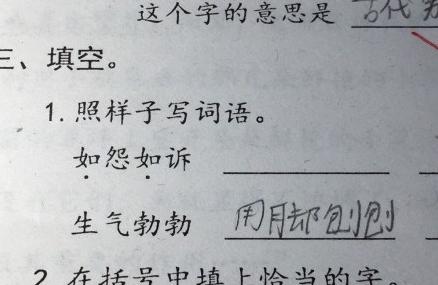 这个字的意思是 古代
三、填空。
1. 照样子写词语。
如怨如诉
生气勃勃 用脚刨刨
2. 在括号中填上恰当的字。